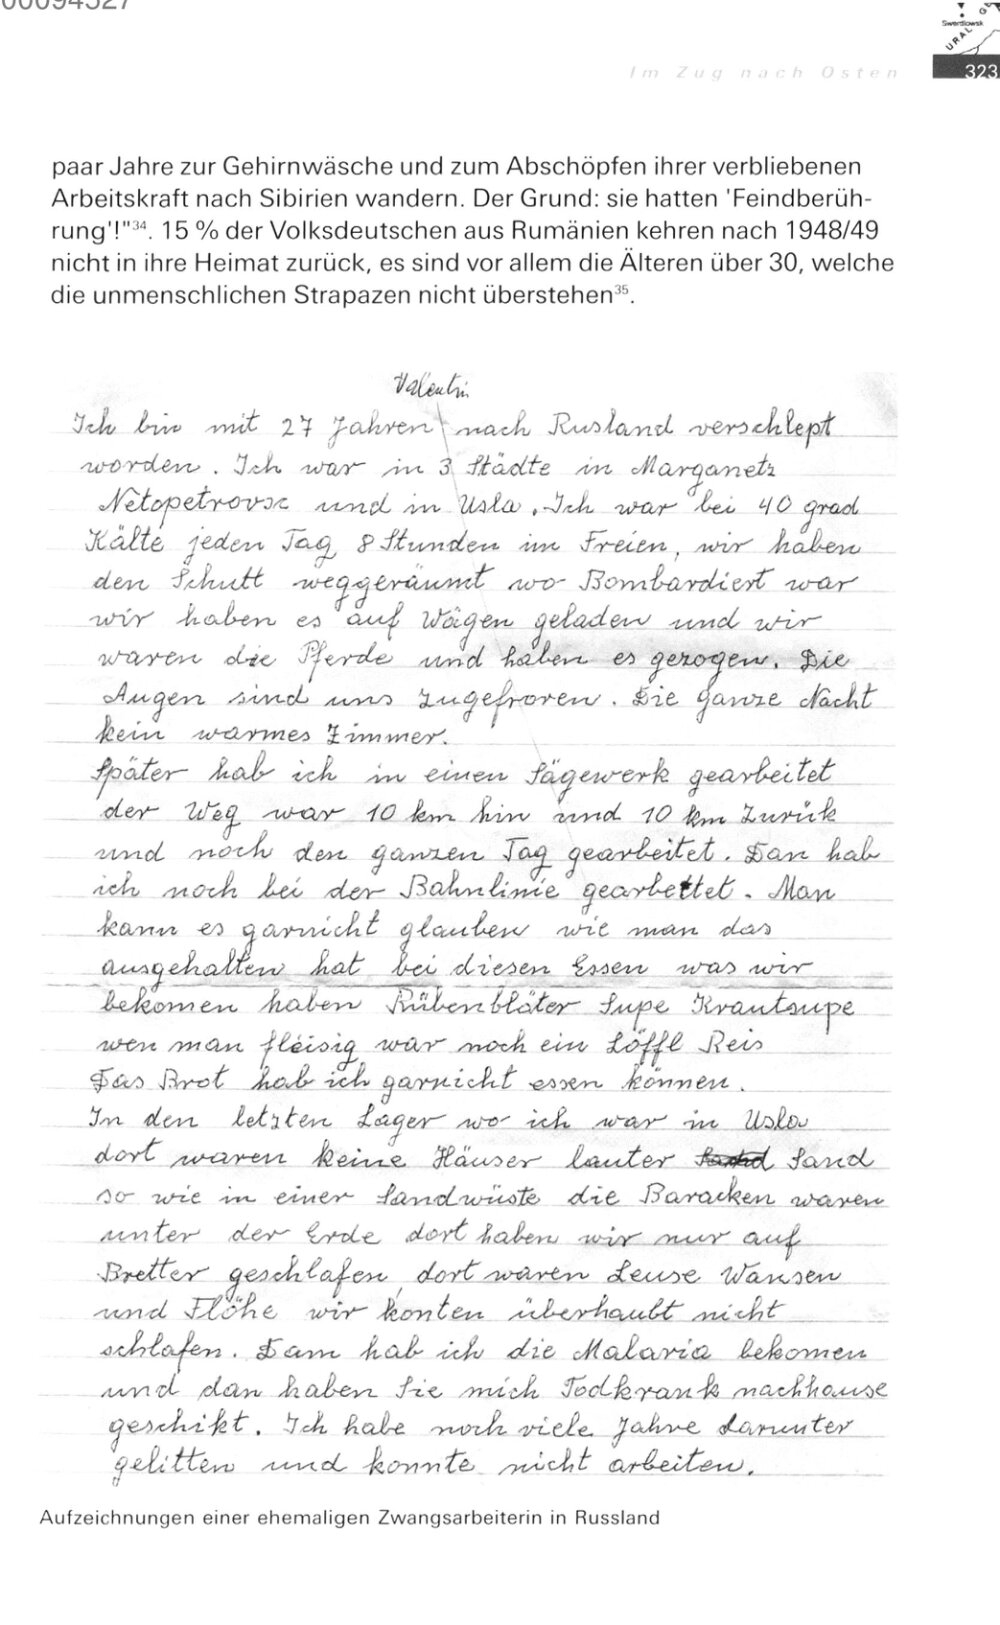 00094327
Swerdlowsk
URAL
Im Zug nach Osten
323
paar Jahre zur Gehirnwäsche und zum Abschöpfen ihrer verbliebenen
Arbeitskraft nach Sibirien wandern. Der Grund: sie hatten 'Feindberüh-
rung'!"34. 15 % der Volksdeutschen aus Rumänien kehren nach 1948/49
nicht in ihre Heimat zurück, es sind vor allem die Älteren über 30, welche
die unmenschlichen Strapazen nicht überstehen35.
Valentin
Ich bin mit 27 Jahren nach Rusland verschlept
worden. Ich war in 3 Städte in Marganetz
Netopetrovsc und in Usla. Ich war bei 40 grad
Kälte jeden Tag 8 Stunden im Freien, wir haben
den Schutt weggeräumt wo Bombardiert war
wir haben es auf Wägen geladen und wir
waren die Pferde und haben es gezogen. Die
Augen sind uns zugefroren. Die ganze Nacht
kein warmes Zimmer.
Später hab ich in einen Sägewerk gearbeitet
der Weg war 10 km hin und 10 km Zurük
und noch den ganzen Tag gearbeitet. Dan hab
ich noch bei der Bahnlinie gearbettet. Man
kann es garnicht glauben wie man das
ausgehalten hat bei diesen Essen was wir
bekomen haben Rübenbläter Supe Krautsupe
wen man fleisig war noch ein Löffl Reis
Das Brot hab ich garnicht essen können.
In den letzten Lager wo ich war in Usla
dort waren keine Häuser lauter Sand
so wie in einer Sandwüste die Baracken waren
unter der Erde dort haben wir nur auf
Bretter geschlafen, dort waren Leuse Wansen
und Flöhe wir konten überhaubt nicht
schlafen. Dam hab ich die Malaria bekomen
und dan haben Sie mich Todkrank nachhause
geschikt. Ich habe noch viele Jahre darunter
gelitten und konnte nicht arbeiten.
Aufzeichnungen einer ehemaligen Zwangsarbeiterin in Russland